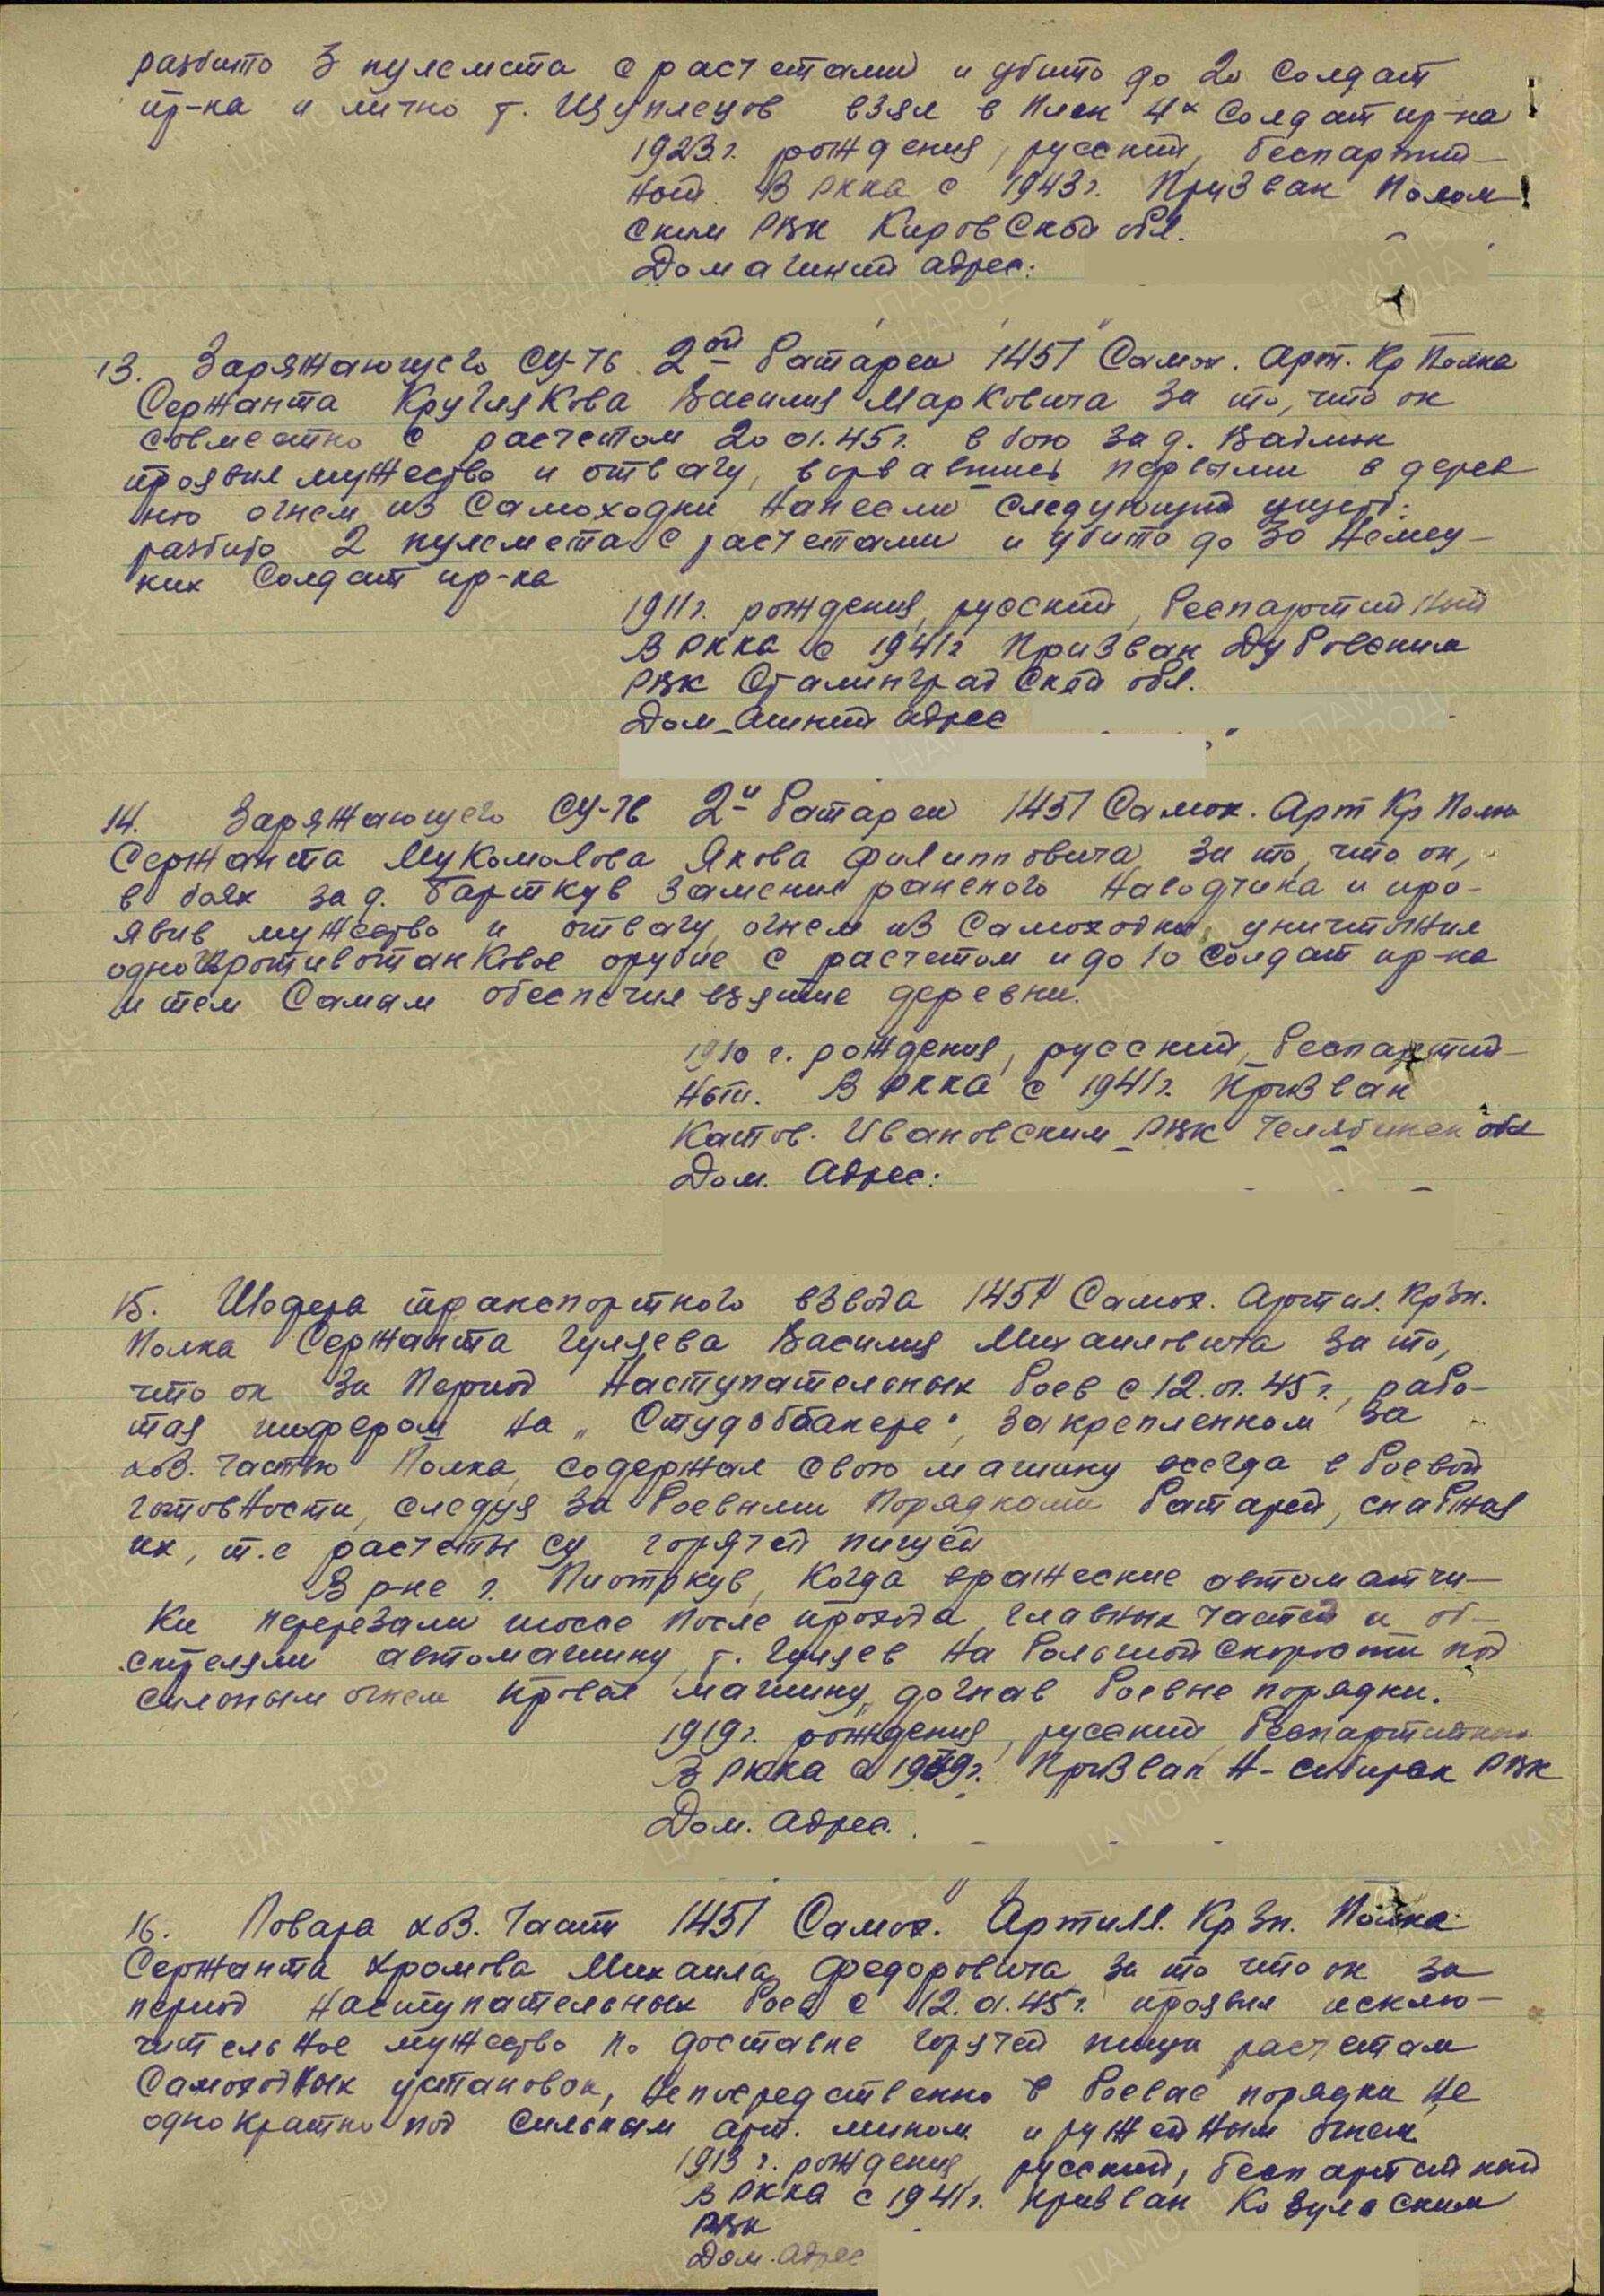 разбито 3 пулемета с расчетами и убито до 20 солдат
пр-ка и лично т. Щуплецов взял в плен 4х солдат пр-ка
1923 г. рождения, русский, беспартий-
ный. В РККА с 1943 г. Призван Полом
ским РВК Кировской обл.
Домашний адрес:
13. Заряжающего СУ-76 2ой батареи 1451 Самох. Арт. Кр Полка
Сержанта Круглякова Василия Марковича за то, что он
совместно с расчетом 20.01.45 г. в бою за д.
проявил мужество и отвагу, ворвавшись первыми в дерев
ню огнем из самоходки нанесли следующий ущерб:
разбито 2 пулемета с расчетами и убито до 30 немец-
ких солдат пр-ка
1911 г. рождения, русский, беспартийный
В РККА с 1941 г Призван Дубовским
РВК Сталинградской обл.
Домашний адрес
14. Заряжающего СУ-76 2й батареи 1451 Самох. Арт Кр Полка
Сержанта Мукомолова Якова Филипповича за то, что он,
в боях за д. Барткув заменил раненого наводчика и про-
явив мужество и отвагу, огнем из самоходки уничтожил
одно противотанковое орудие с расчетом и до 10 солдат пр-ка
и тем самам обеспечил взятие деревни.
1910 г. рождения, русский, беспартий-
ный. В РККА с 1941 г. Призван
Катов. Ивановским РВК Челябинск обл
Дом. Адрес:
15. Шофера транспортного взвода 1451 Самох. Артил. Крзн.
Полка Сержанта Гуляева Василия Михаиловича за то,
что он за период наступательных боев с 12.01.45 г., рабо-
тая шофером на „Студоббакере", закрепленном за
хоз. частью Полка, содержал свою машину всегда в боевой
готовности, следуя за боевыми порядками батарей, снабжая
их, т.е расчеты су горячей пищей
В р-не г. Пиотркув, когда вражеские автоматчи-
ки перерезали шоссе после прохода главных частей и об-
стреляли автомашину, т. Гуляев на большой скорости под
сильным огнем провел машину, догнав боевые порядки.
1919 г. рождения, русский, беспартийный
В РККА с 1939 г. Призван Н-Сибирск РВК
Дом. адрес.
16. Повара хоз. части 1451 Самох. Артилл. Кр Зн. Полка
Сержанта Хромова Михаила Федоровича за то что он за
период наступательных боев с 12.01.45 г. проявил исклю-
чительное мужество по доставке горячей пищи расчетам
самоходных установок, непосредственно в боевые порядки не
однократно под сильным арт. мином и ружейным огнем
1913 г. рождения, русский, беспартийный
В РККА с 1941 г. призван Козульским
РВК
Дом. адрес